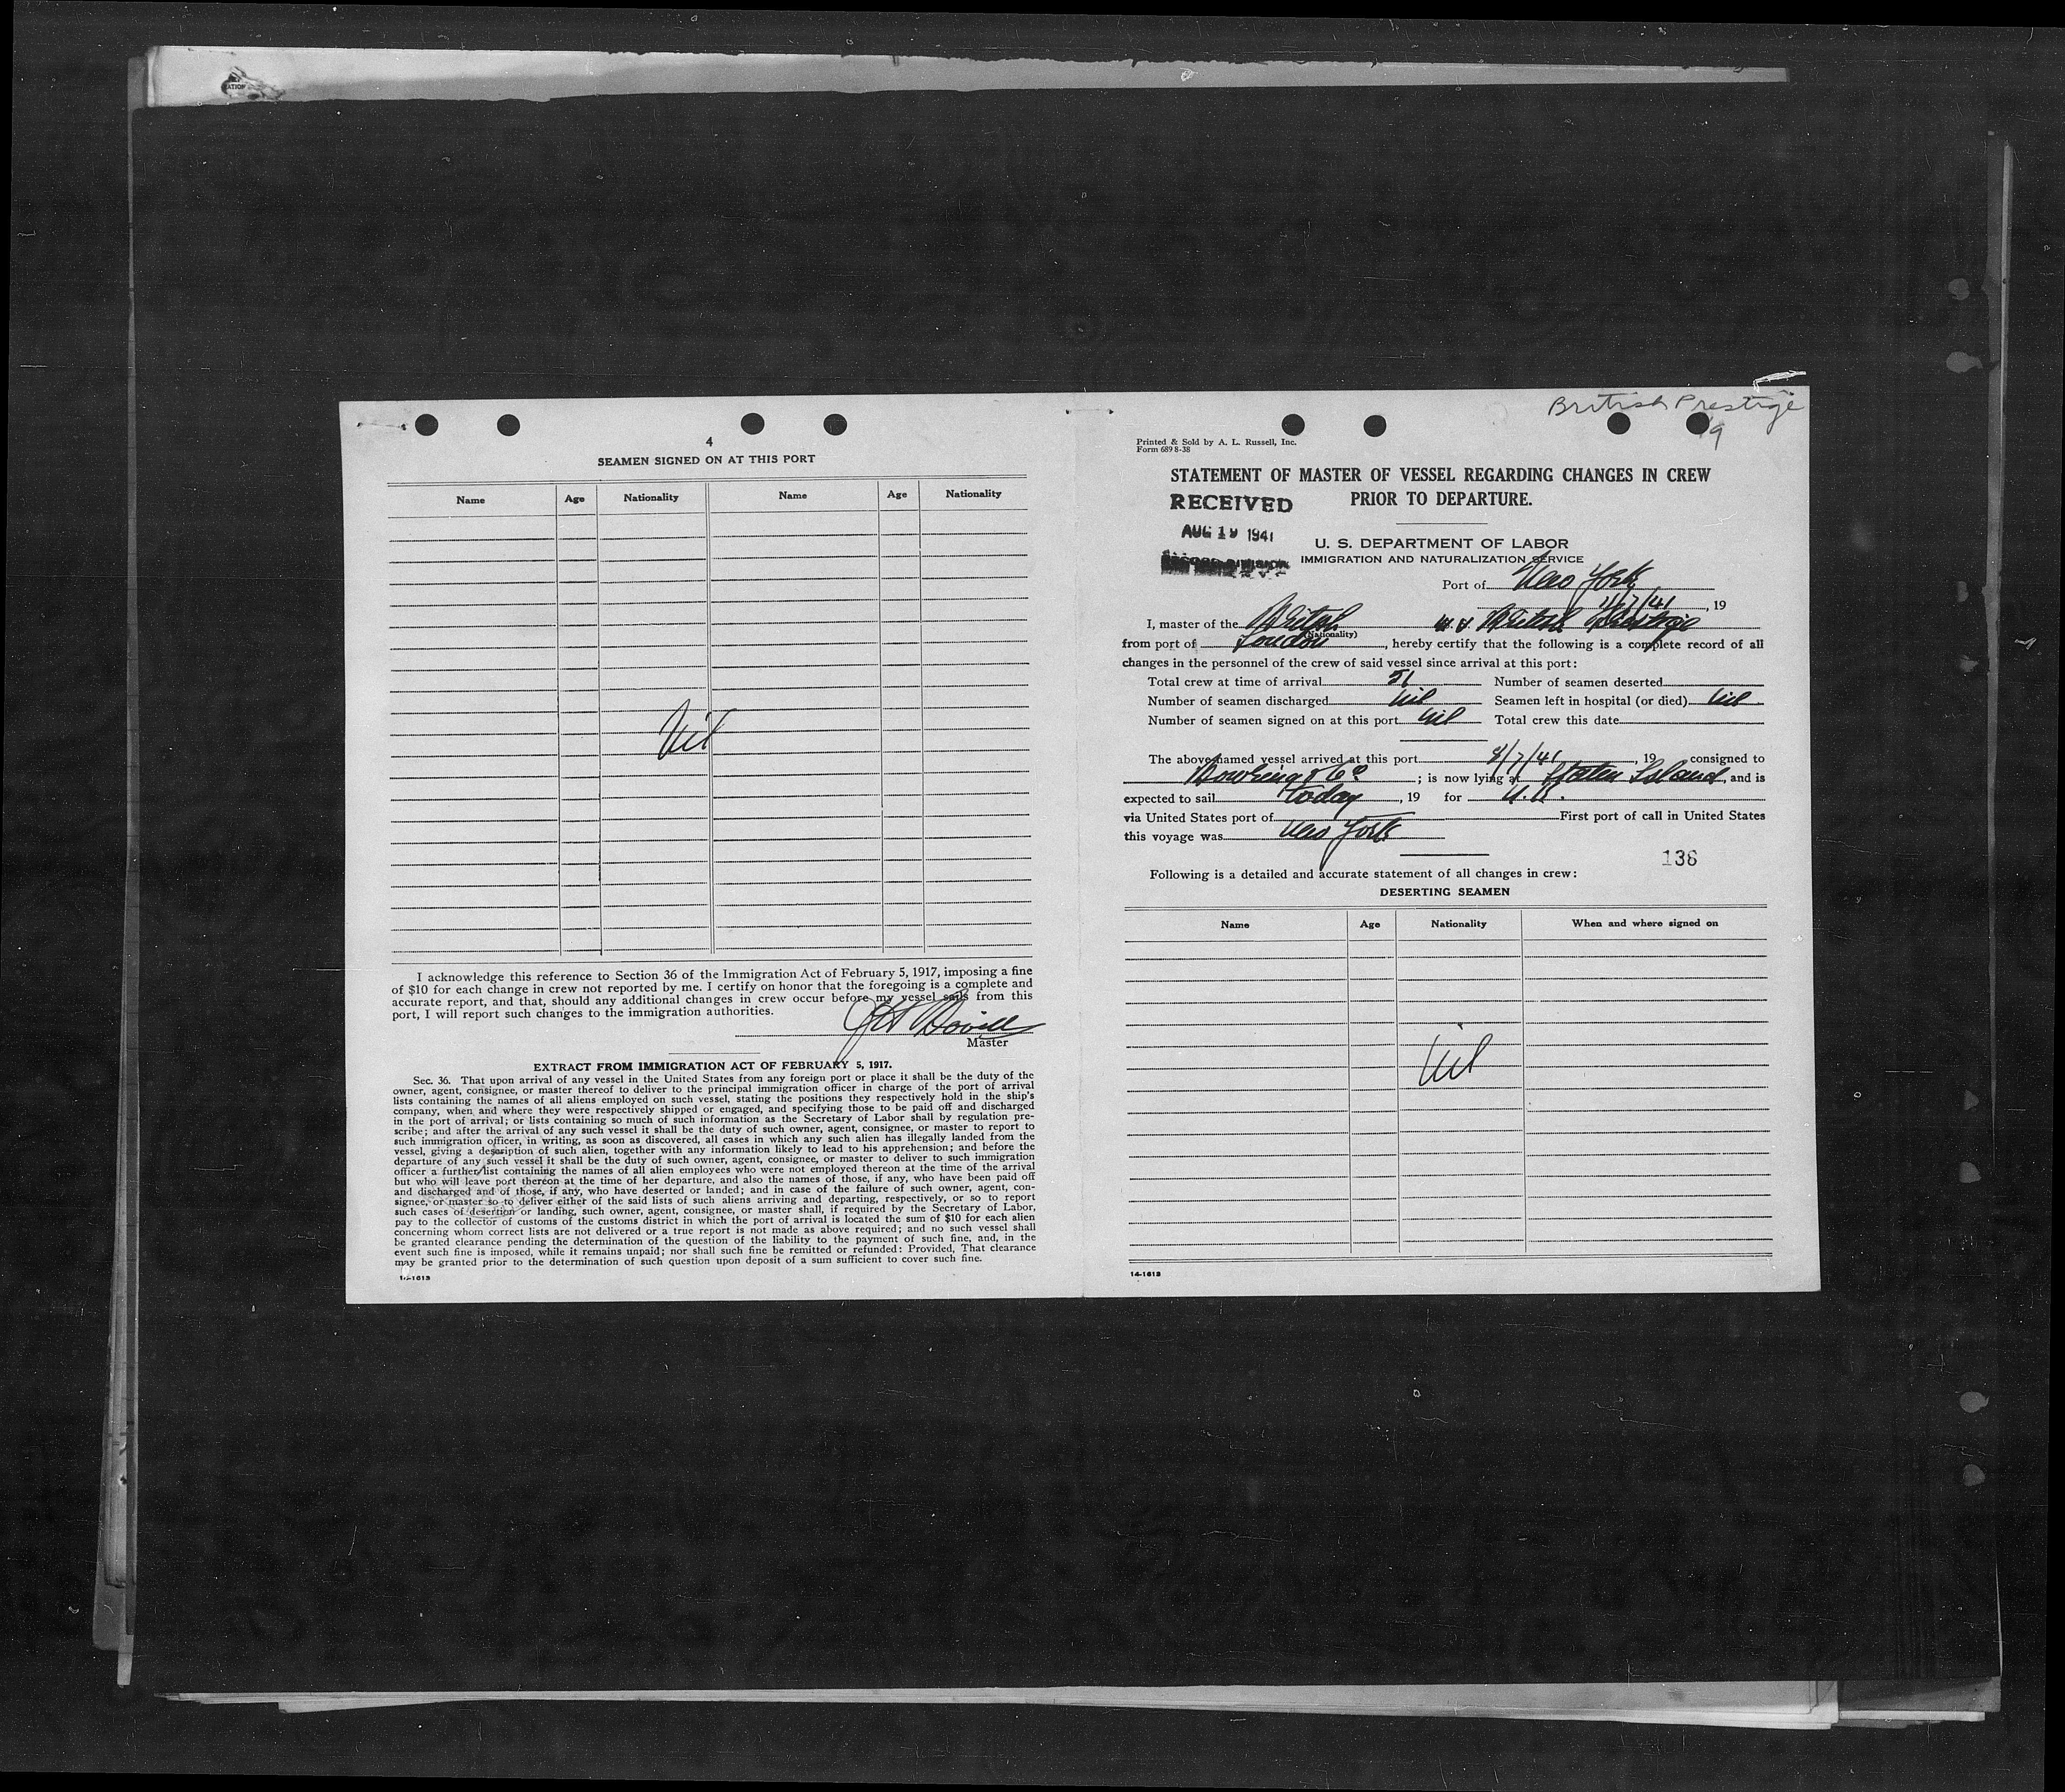 ATION
4
SEAMEN SIGNED ON AT THIS PORT
Name Age Nationality Name Age Nationality
Nil
I acknowledge this reference to Section 36 of the Immigration Act of February 5, 1917, imposing a fine
of $10 for each change in crew not reported by me. I certify on honor that the foregoing is a complete and
accurate report, and that, should any additional changes in crew occur before my vessel sails from this
port, I will report such changes to the immigration authorities.
Master
EXTRACT FROM IMMIGRATION ACT OF FEBRUARY 5, 1917.
Sec. 36. That upon arrival of any vessel in the United States from any foreign port or place it shall be the duty of the
owner, agent, consignee, or master thereof to deliver to the principal immigration officer in charge of the port of arrival
lists containing the names of all aliens employed on such vessel, stating the positions they respectively hold in the ship's
company, when and where they were respectively shipped or engaged, and specifying those to be paid off and discharged
in the port of arrival; or lists containing so much of such information as the Secretary of Labor shall by regulation pre-
scribe; and after the arrival of any such vessel it shall be the duty of such owner, agent, consignee, or master to report to
such immigration officer, in writing, as soon as discovered, all cases in which any such alien has illegally landed from the
vessel, giving a description of such alien, together with any information likely to lead to his apprehension; and before the
departure of any such vessel it shall be the duty of such owner, agent, consignee, or master to deliver to such immigration
officer a further list containing the names of all alien employees who were not employed thereon at the time of the arrival
but who will leave port thereon at the time of her departure, and also the names of those, if any, who have been paid off
and discharged and of those, if any, who have deserted or landed; and in case of the failure of such owner, agent, con-
signee, or master so to deliver either of the said lists of such aliens arriving and departing, respectively, or so to report
such cases of desertion or landing, such owner, agent, consignee, or master shall, if required by the Secretary of Labor,
pay to the collector of customs of the customs district in which the port of arrival is located the sum of $10 for each alien
concerning whom correct lists are not delivered or a true report is not made as above required; and no such vessel shall
be granted clearance pending the determination of the question of the liability to the payment of such fine, and, in the
event such fine is imposed, while it remains unpaid; nor shall such fine be remitted or refunded: Provided, That clearance
may be granted prior to the determination of such question upon deposit of a sum sufficient to cover such fine.
14-1613
British Prestige
9
Printed & Sold by A. L. Russell, Inc.
Form 689 8-38
STATEMENT OF MASTER OF VESSEL REGARDING CHANGES IN CREW
PRIOR TO DEPARTURE.
RECEIVED
AUG 19 1941
U. S. DEPARTMENT OF LABOR
IMMIGRATION AND NATURALIZATION SERVICE
Port of New York
/7/41, 19
I, master of the British British Prestige
(Nationality)
from port of London, hereby certify that the following is a complete record of all
changes in the personnel of the crew of said vessel since arrival at this port:
Total crew at time of arrival 51 Number of seamen deserted
Number of seamen discharged Nil Seamen left in hospital (or died) Nil
Number of seamen signed on at this port Nil Total crew this date
The above named vessel arrived at this port 8/7/41, 19 consigned to
Bowring & Co; is now lying at Staten Island, and is
expected to sail today, 19 for U.K.
via United States port of First port of call in United States
this voyage was New York
136
Following is a detailed and accurate statement of all changes in crew:
DESERTING SEAMEN
Name Age Nationality When and where signed on
Nil
14-1613